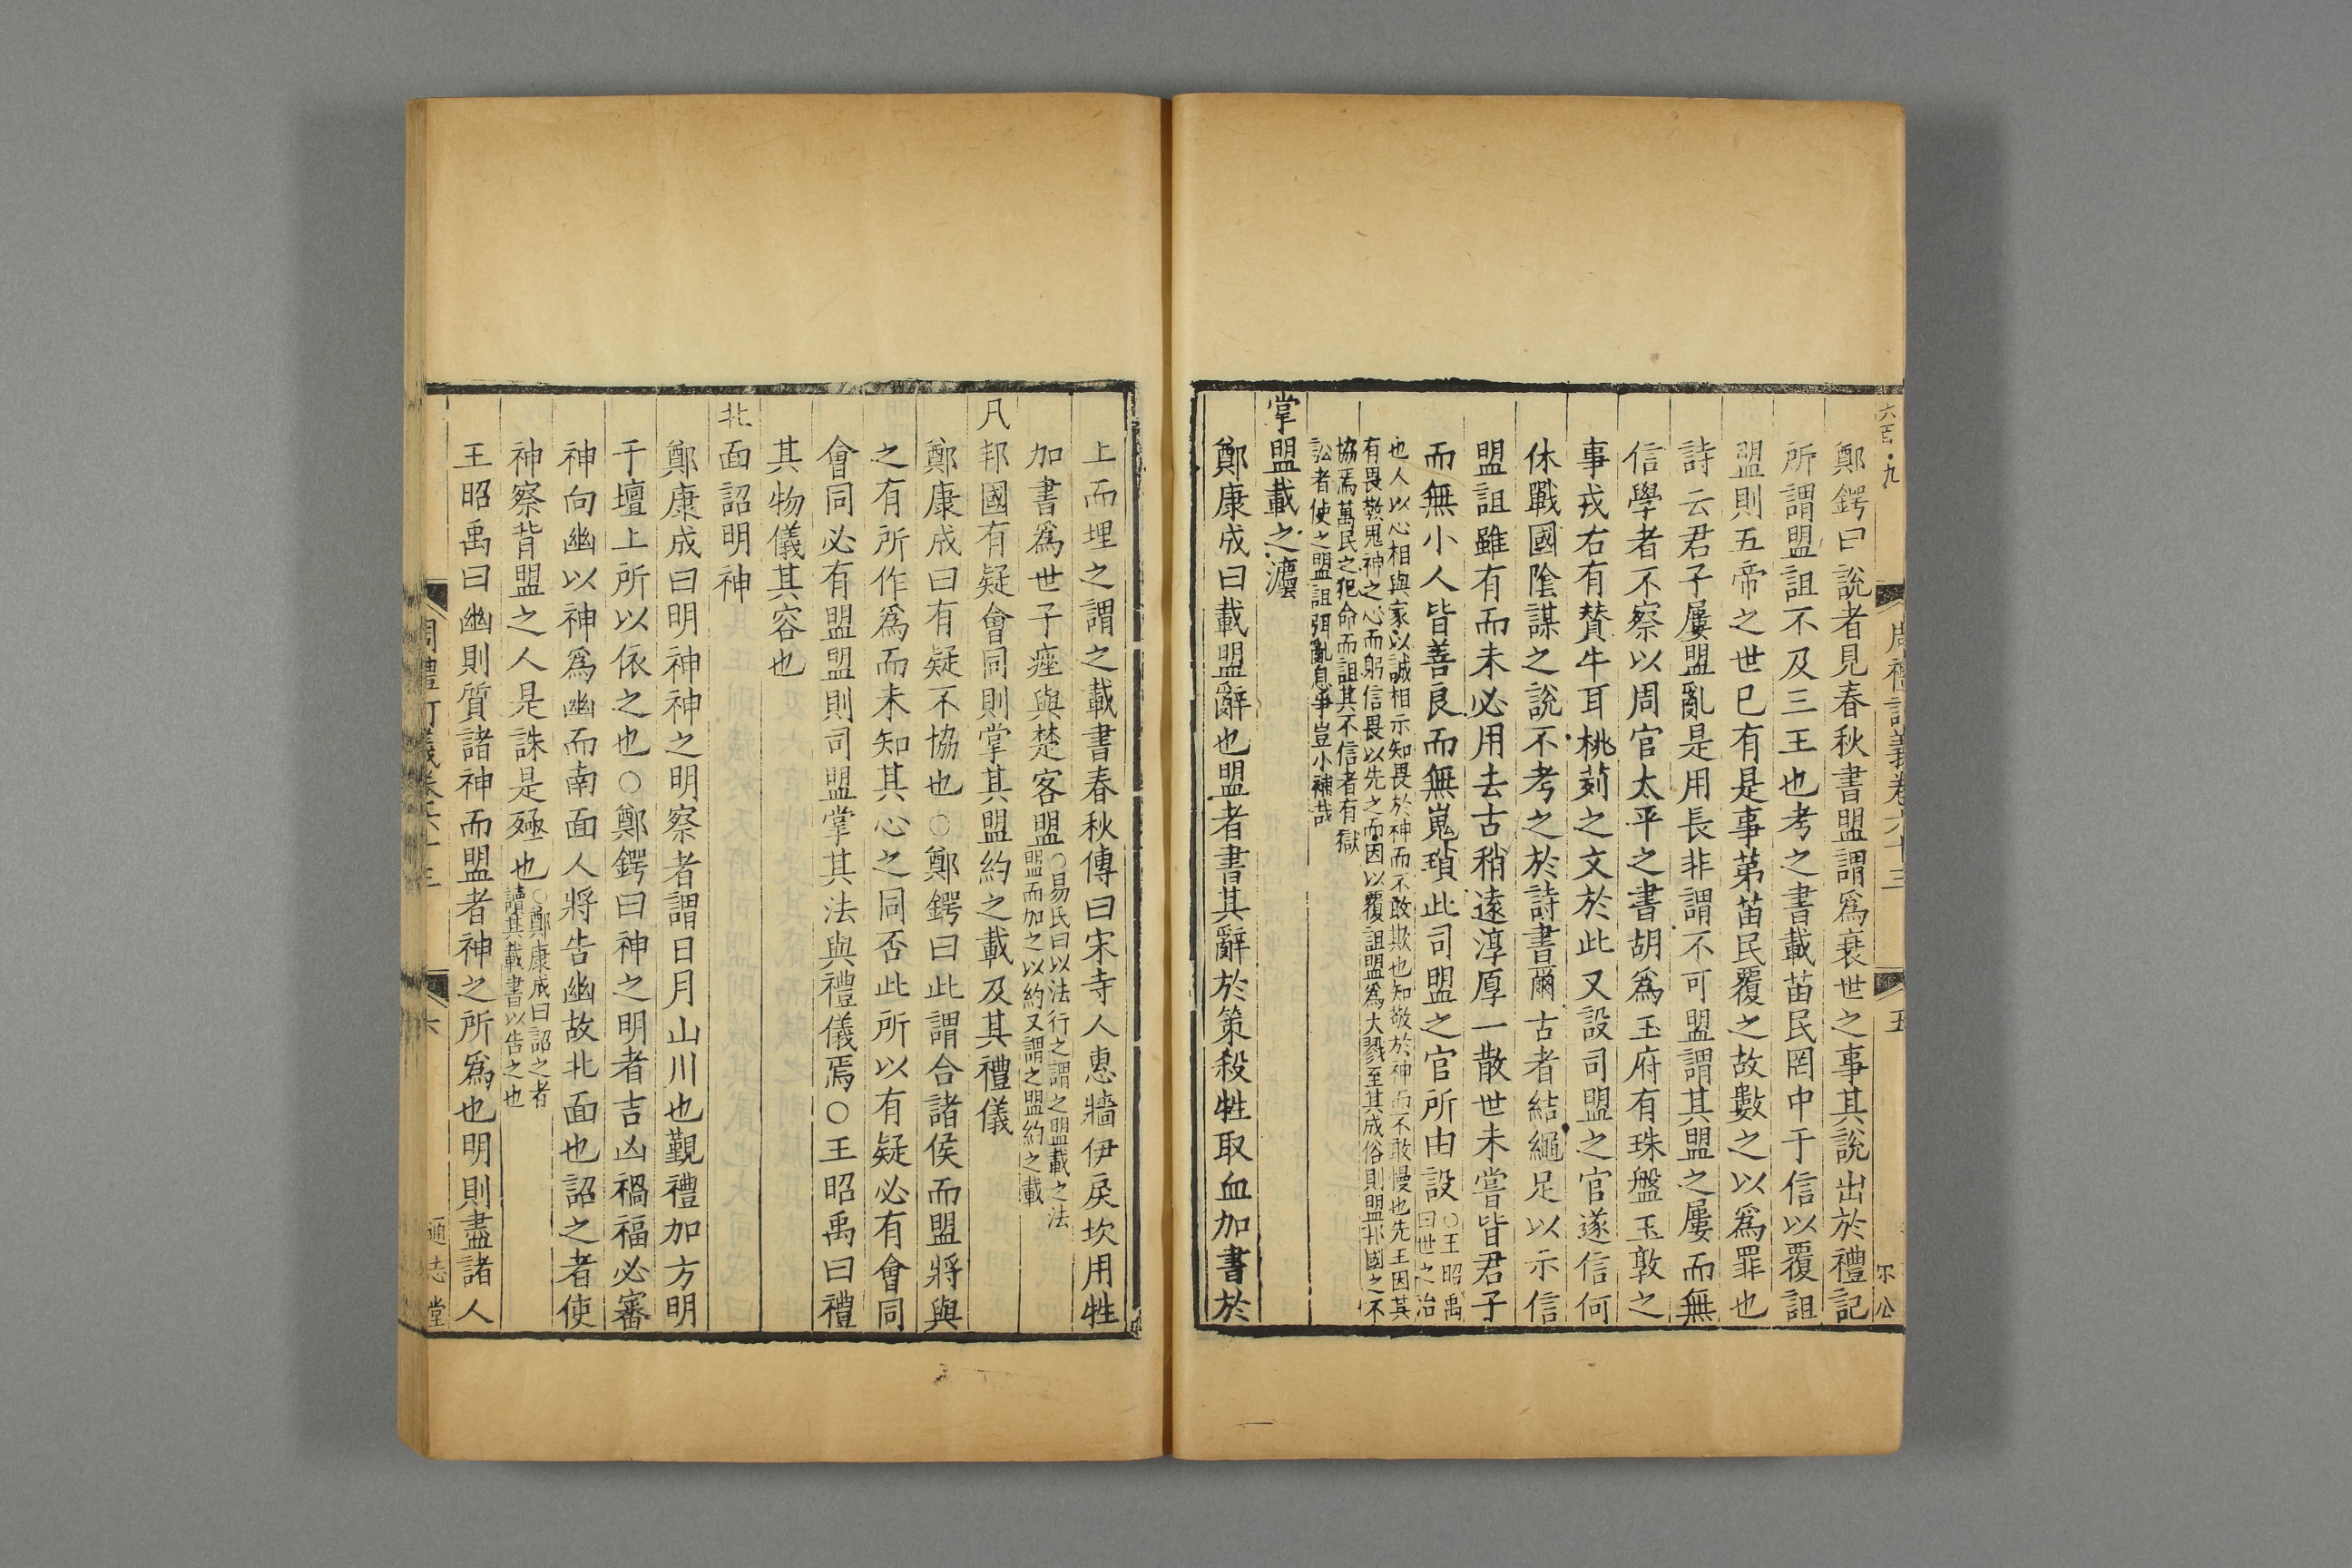 鄭鍔曰說者見春秋書盟謂爲衰世之事其說出於禮記
所謂盟詛不及三王也考之書載苗民罔中于信以覆詛
盟則五帝之世已有是事苐苗民覆之故數之以爲罪也
詩云君子屢盟亂是用長非謂不可盟謂其盟之屢而無
信學者不察以周官太平之書胡爲玉府有珠盤玉敦之
事戎右有賛牛耳桃茢之文於此又設司盟之官遂信何
休戰國隂謀之說不考之於詩書爾古者結繩足以示信
盟詛雖有而未必用去古稍逺淳厚一散世未嘗皆君子
而無小人皆善良而無嵬瑣此司盟之官所由設○王昭禹曰世之治
也人以心相與家以誠相示知畏於神而不敢欺也知敬於神而不敢慢也先王因其
有畏敬鬼神之心而躬信畏以先之而因以覆詛盟爲大戮至其成俗則盟邦國之不
協焉萬民之犯命而詛其不信者有獄
訟者使之盟詛弭亂息爭豈小補哉
掌盟載之灋
鄭康成曰載盟辭也盟者書其辭於策殺牲取血加書於
周禮訂義卷六十三
五
上而埋之謂之載書春秋傳曰宋寺人惠牆伊戾坎用牲
加書爲世子痤與楚客盟○易氏曰以法行之謂之盟載之法
盟而加之以約又謂之盟約之載
凡邦國有疑會同則掌其盟約之載及其禮儀
鄭康成曰有疑不協也○鄭鍔曰此謂合諸侯而盟將與
之有所作爲而未知其心之同否此所以有疑必有會同
會同必有盟盟則司盟掌其法與禮儀焉○王昭禹曰禮
其物儀其容也
北面詔明神
鄭康成曰明神神之明察者謂日月山川也覲禮加方明
于壇上所以依之也○鄭鍔曰神之明者吉凶禍福必審
神向幽以神爲幽而南面人將告幽故北面也詔之者使
神察背盟之人是誅是殛也○鄭康成曰詔之者
讀其載書以告之也
王昭禹曰幽則質諸神而盟者神之所爲也明則盡諸人
周禮訂義卷六十三
六
通志堂